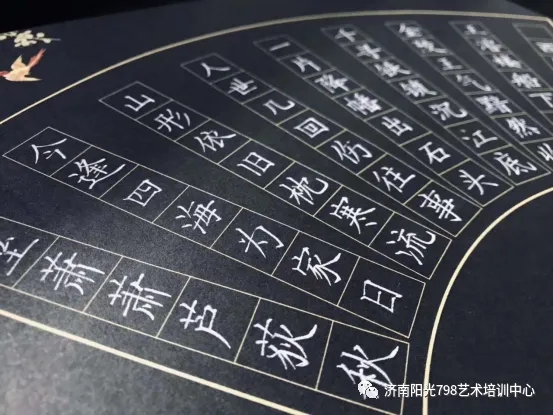 金陵王气黯然
千寻铁锁沉江底
一片降幡出石头
人世几回伤往事
山形依旧枕寒流
今逢四海为家日
垒萧萧芦荻秋
济南阳光798艺术培训中心